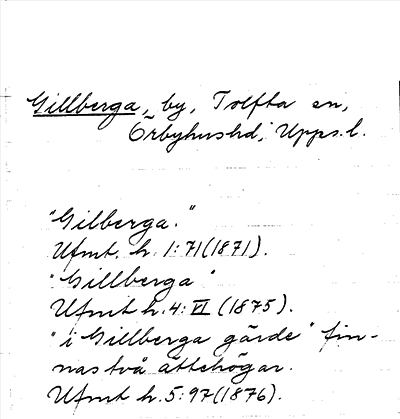 Gillberga, by, Tolfta sn,
Örbyhus hd, Upps. l.
"Gilberga."
Ufmt. h. 1:71(1871).
"Gillberga"
Ufmt h. 4: VI (1875).
"i Gillberga gärde" fin-
nas två ättehögar.
Ufmt h. 5:97(1876).